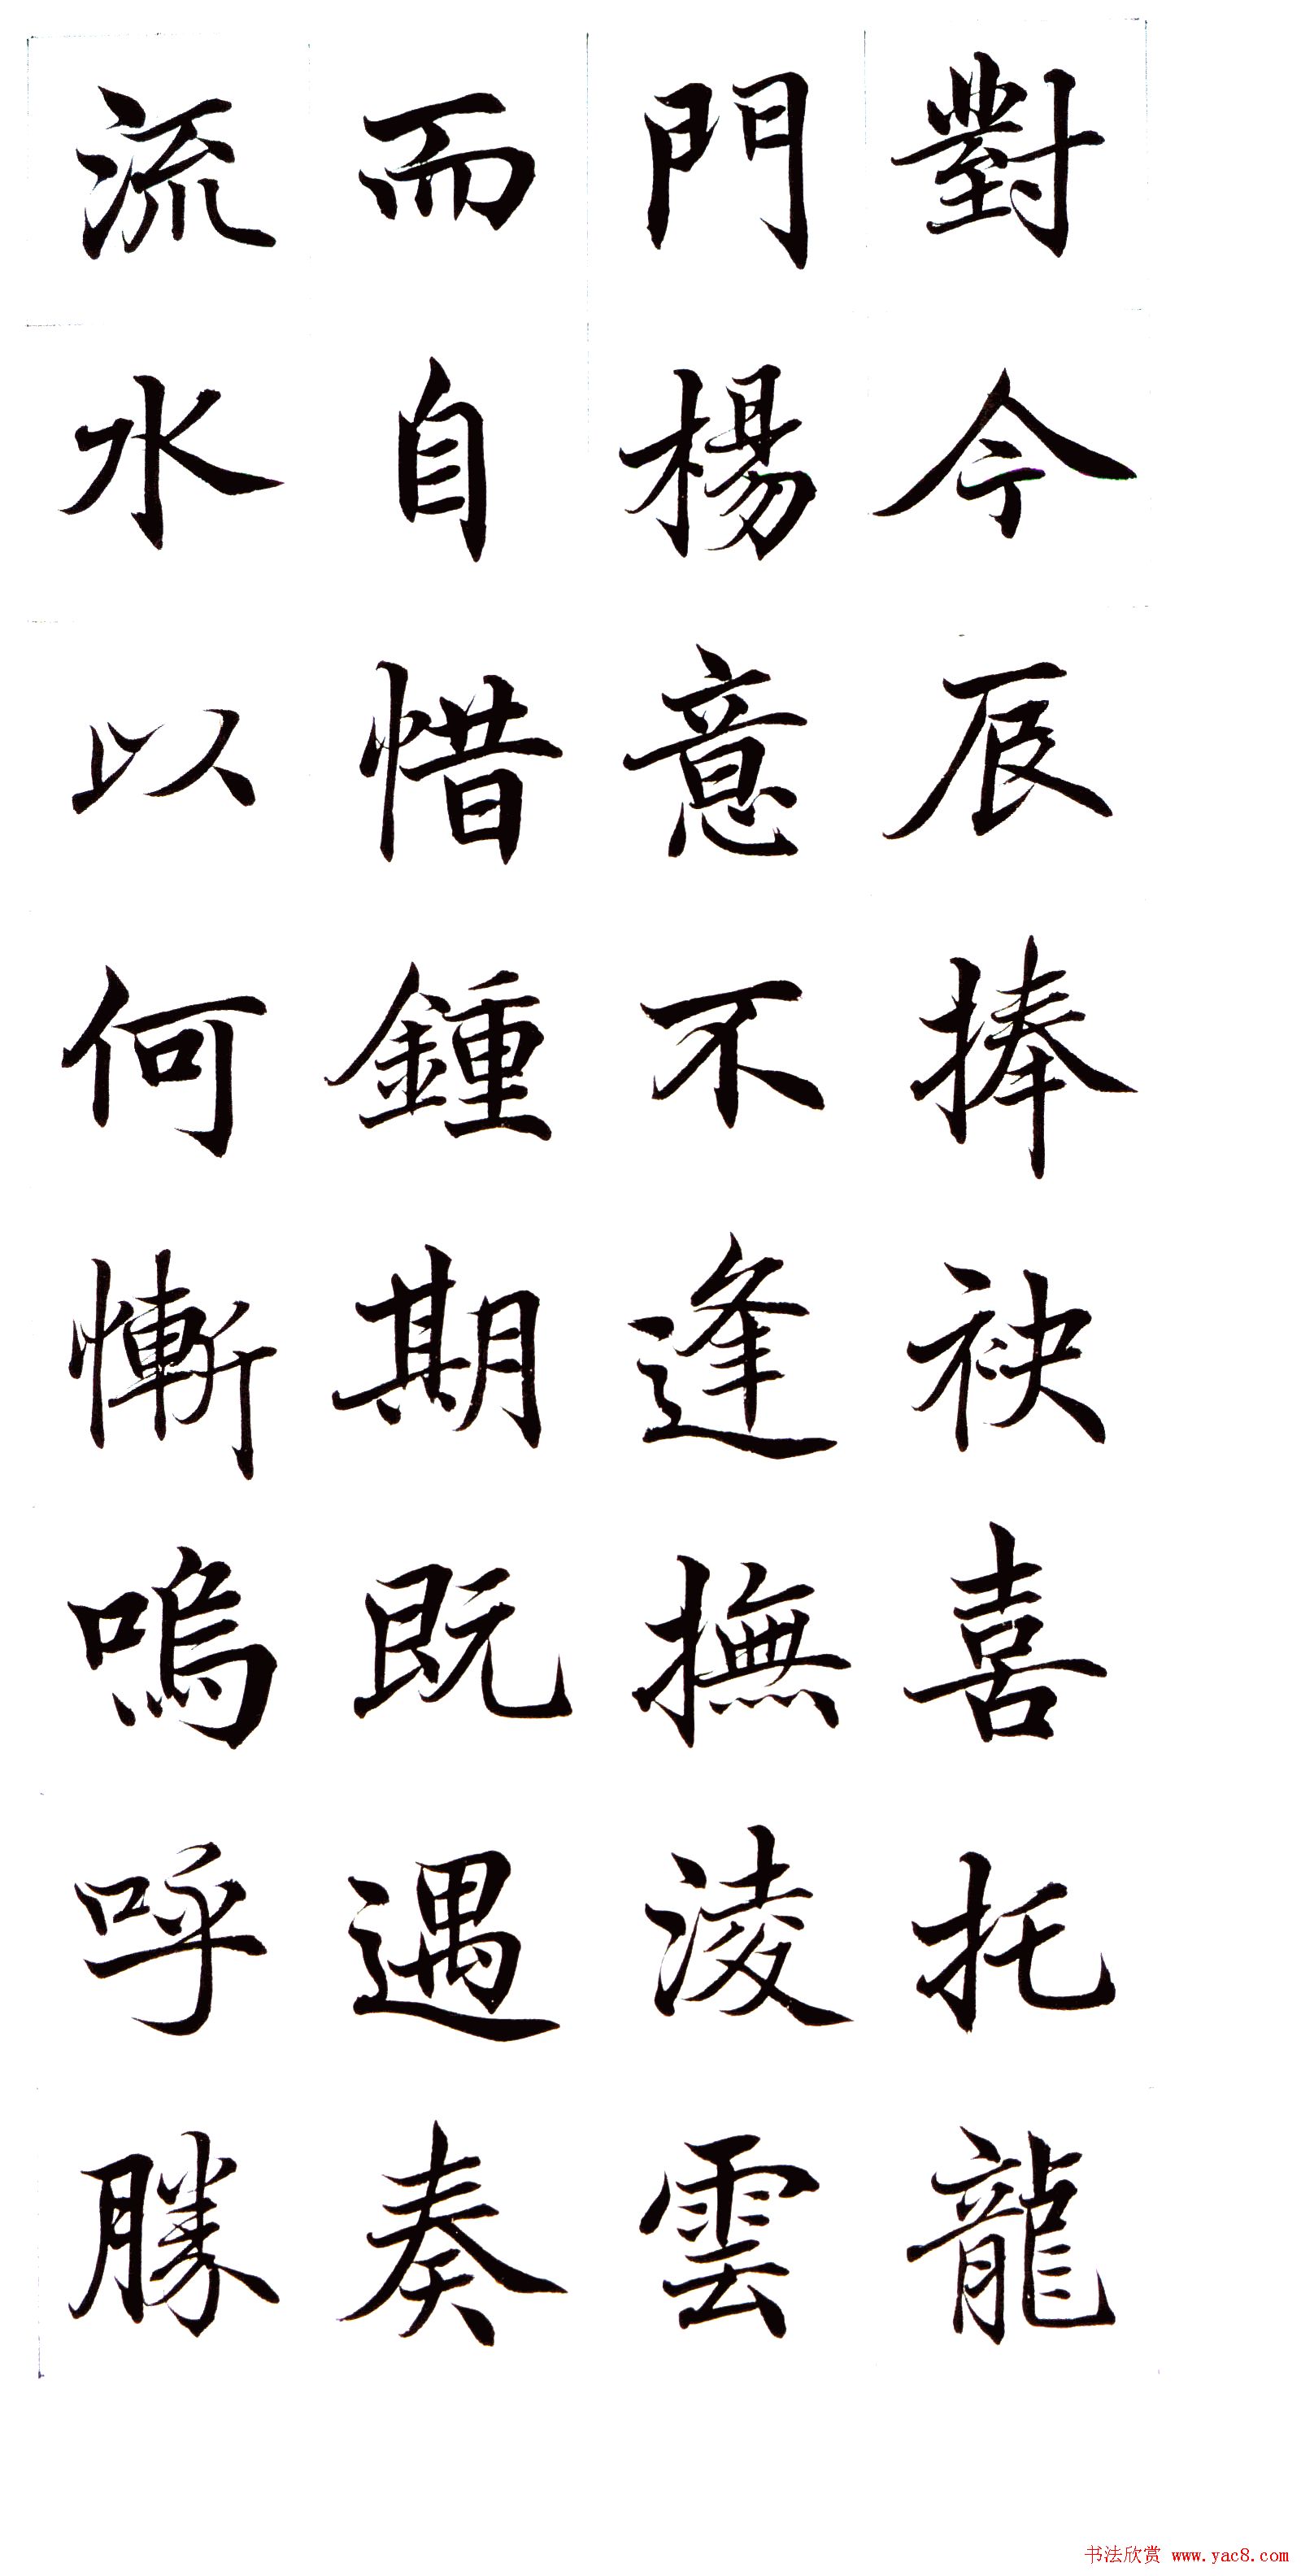 對今辰捧袂喜托龍
門楊意不逢撫淩雲
而自惜鍾期既遇奏
流水以何慚嗚呼勝
书法欣赏 www.yac8.com